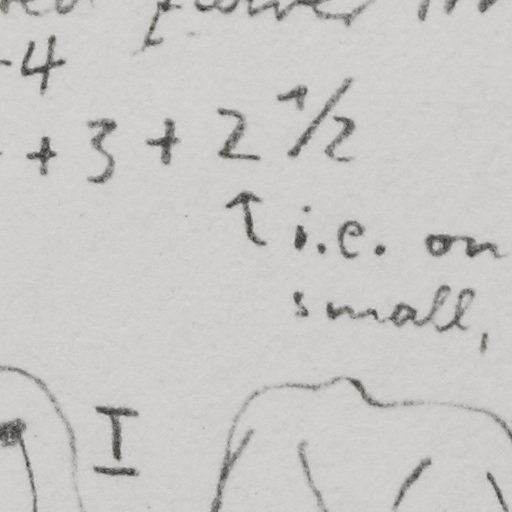 -4
+ 3 + 2 1/2
↑ i.e. on
small,
I